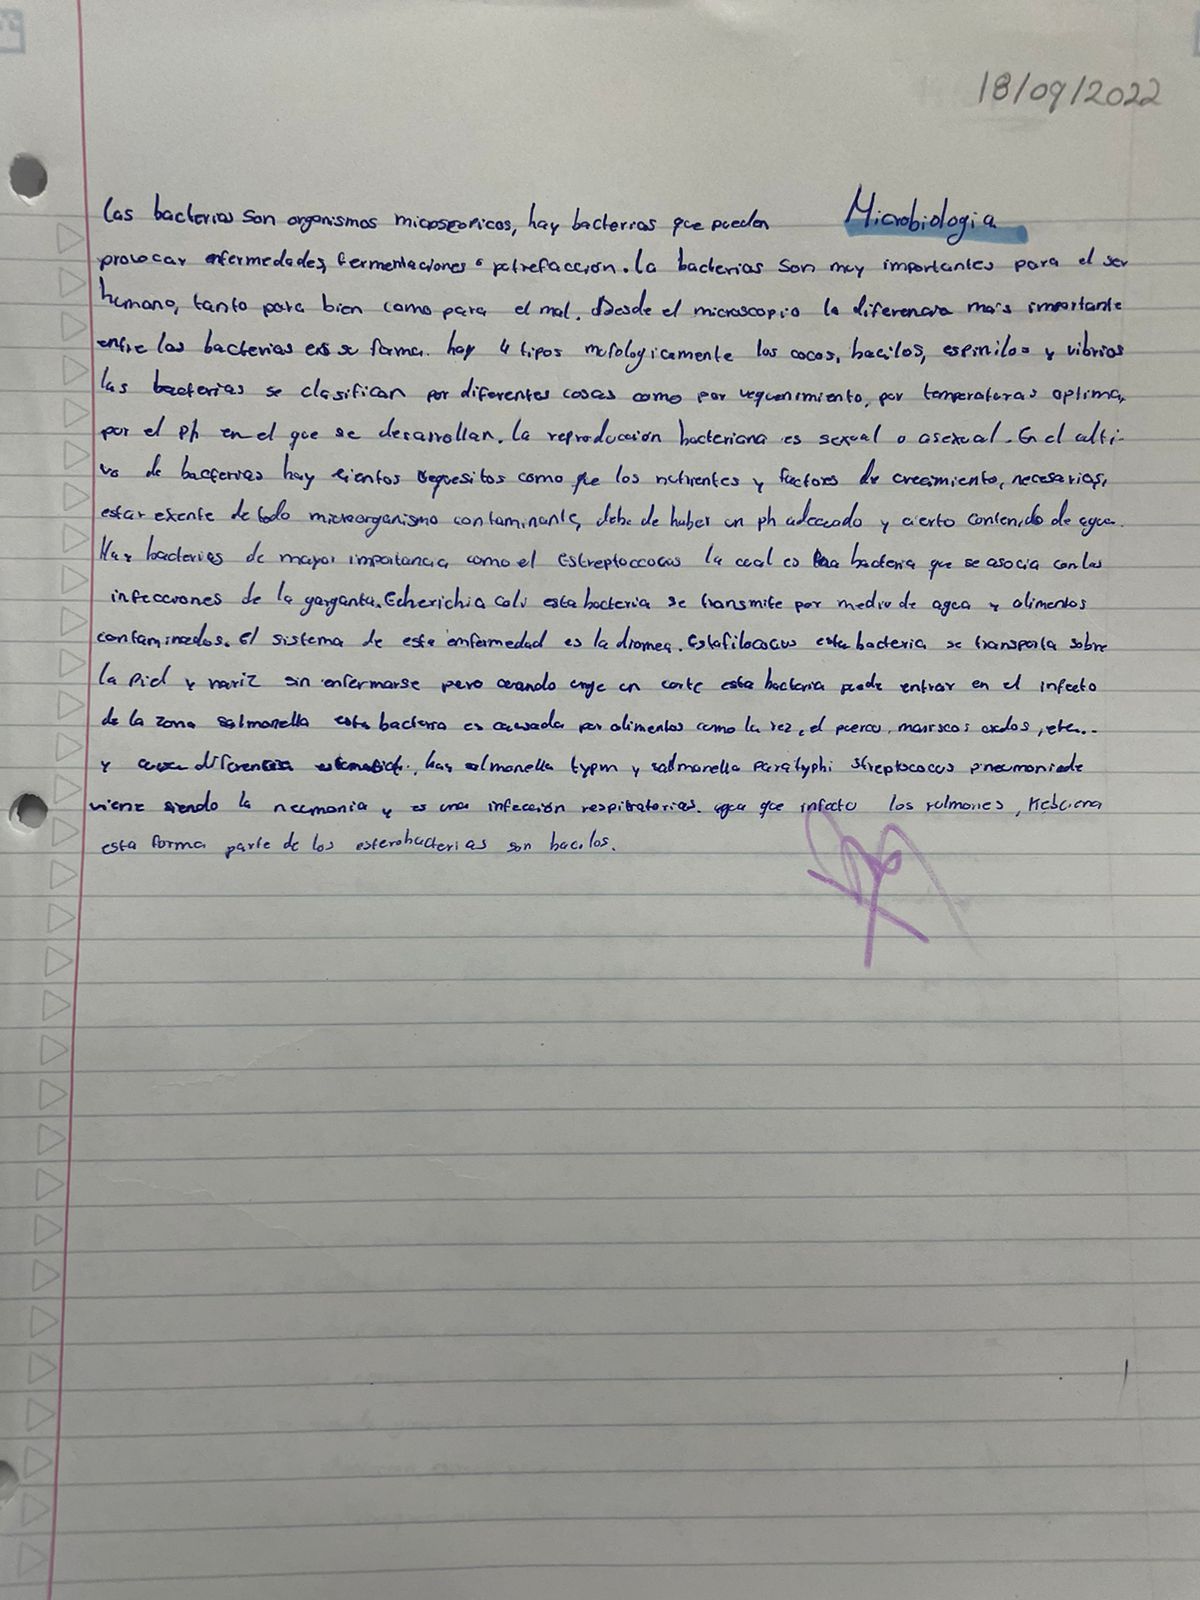 18/09/2022
Microbiologia
Las bacterias son organismos microscopicos, hay bacterias que pueden
provocar enfermedades, fermentaciones o putrefacción. la bacterias son muy importantes para el ser
humano, tanto para bien como para el mal. Desde el microscopio la diferencia más importante
entre las bacterias es su forma. hay 4 tipos mofologicamente los cocos, bacilos, espirilos y vibrios
las bacterias se clasifican por diferentes cosas como por requerimiento, por temperaturas optima,
por el Ph en el que se desarrollan. la reproducción bacteriana es sexual o asexual. En el culti-
vo de bacterias hay cientos requesitos como que los nutrientes y factores de crecimiento, necesarios,
estar exente de todo microorganismo contaminante, debe de haber un ph adecuado y cierto contenido de agua.
Hay bacterias de mayor importancia como el Estreptoccocus la cual es una bacteria que se asocia con las
infecciones de la garganta. Echerichia Coli esta bacteria se transmite por medio de agua y alimentos
contaminados. el sistema de este enfermedad es la diarrea. Estafilococus esta bacteria se transporta sobre
la Piel y nariz sin enfermarse pero cuando en corte esta bacteria puede entrar en el infecto
de la zona salmonella esta bacteria es causada por alimentos como la rez, el puerco, mariscos crudos, etc...
y causa hay salmonella y salmonella Paratyphi Streptococus pneumoniade
viene siendo la neumonia y es una infección respiratorias. que infecto los pulmones,
esta forma parte de los esterobacterias son bacilos.